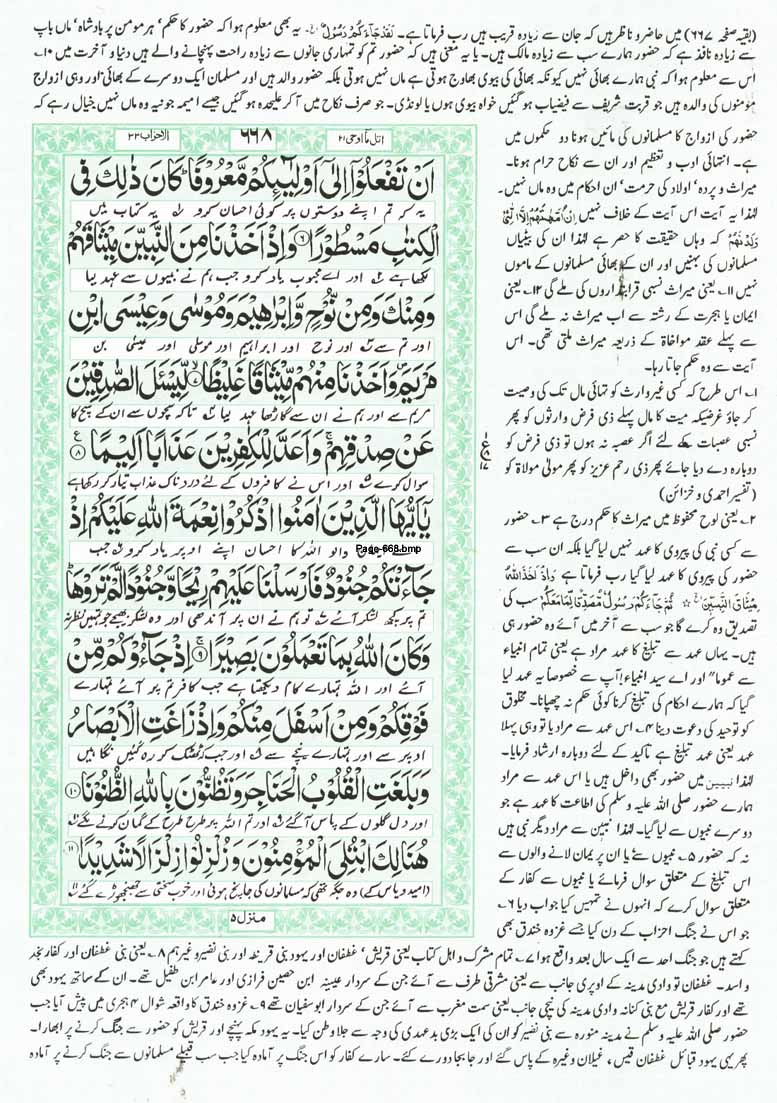 (بقیہ صفحہ ۶۶۷) میں حاضر و ناظر ہیں کہ جان سے زیادہ قریب ہیں رب فرماتا ہے۔ لَقَدْ جَآءَكُمْ رَسُوْلٌ الخ۔ یہ بھی معلوم ہوا کہ حضور کا حکم' ہر مومن پر بادشاہ' ماں باپ
سے زیادہ نافذ ہے کہ حضور ہمارے سب سے زیادہ مالک ہیں۔ یا یہ معنی ہیں کہ حضور تم کو تمہاری جانوں سے زیادہ راحت پہنچانے والے ہیں دنیا و آخرت میں ۱۰۔
اس سے معلوم ہوا کہ نبی ہمارے بھائی نہیں کیونکہ بھائی کی بیوی بھاوج ہوتی ہے ماں نہیں ہوتی بلکہ حضور والد ہیں اور مسلمان ایک دوسرے کے بھائی اور وہی ازواج
مومنوں کی والدہ ہیں جو قربت شریف سے فیضیاب ہو گئیں خواہ بیوی ہوں یا لونڈی۔ جو صرف نکاح میں آ کر علیحدہ ہو گئیں جیسے امیمہ جونیہ وہ ماں نہیں خیال رہے کہ
حضور کی ازواج کا مسلمانوں کی مائیں ہونا دو حکموں میں
ہے۔ انتہائی ادب و تعظیم اور ان سے نکاح حرام ہونا۔
میراث و پردہ' اولاد کی حرمت' ان احکام میں وہ ماں نہیں۔
لہٰذا یہ آیت اس آیت کے خلاف نہیں اِنْ اُمَّهٰتُهُمْ اِلَّا الّٰٓـِٔیْ
وَلَدْنَهُمْ کہ وہاں حقیقت کا حصر ہے لہٰذا ان کی بیٹیاں
مسلمانوں کی بہنیں اور ان کے بھائی مسلمانوں کے ماموں
نہیں ۱۱۔ یعنی میراث نسبی قرابتداروں کی ملے گی ۱۲۔ یعنی
ایمان یا ہجرت کے رشتہ سے اب میراث نہ ملے گی اس
سے پہلے عقد مواخاۃ کے ذریعہ میراث ملتی تھی۔ اس
آیت سے وہ حکم جاتا رہا۔
۱۔ اس طرح کہ کسی غیر وارث کو تہائی مال تک کی وصیت
کر جاؤ غرضیکہ میت کا مال پہلے ذی فرض وارثوں کو پھر
نسبی عصبات کے لئے اگر عصبہ نہ ہوں تو ذی فرض کو
دوبارہ دے دیا جائے پھر ذی رحم عزیز کو پھر مولیٰ موالاۃ کو
(تفسیر احمدی و خزائن)
۲۔ یعنی لوح محفوظ میں میراث کا حکم درج ہے ۳۔ حضور
سے کسی نبی کی پیروی کا عہد نہیں لیا گیا بلکہ ان سب سے
حضور کی پیروی کا عہد لیا گیا رب فرماتا ہے وَاِذْ اَخَذَ اللّٰهُ
مِیْثَاقَ النَّبِیّٖنَ الخ ثُمَّ جَآءَكُمْ رَسُوْلٌ مُّصَدِّقٌ لِّمَا مَعَكُمْ سب کی
تصدیق وہ کرے گا جو سب سے آخر میں آئے وہ حضور ہی
ہیں۔ یہاں عہد سے تبلیغ کا عہد مراد ہے یعنی تمام انبیاء
سے عموماً" اور اے سید انبیاء! آپ سے خصوصاً یہ عہد لیا
گیا کہ ہمارے احکام کی تبلیغ کرنا کوئی حکم نہ چھپانا۔ مخلوق
کو توحید کی دعوت دینا ۴۔ اس عہد سے مراد یا تو وہی پہلا
عہد یعنی عہد تبلیغ ہے تاکید کے لئے دوبارہ ارشاد فرمایا۔
لہٰذا نبیین میں حضور بھی داخل ہیں یا اس عہد سے مراد
ہمارے حضور صلی اللہ علیہ وسلم کی اطاعت کا عہد ہے جو
دوسرے نبیوں سے لیا گیا۔ لہٰذا نبیین سے مراد دیگر نبی ہیں
نہ کہ حضور ۵۔ نبیوں سے یا ان پر ایمان لانے والوں سے
اس تبلیغ کے متعلق سوال فرمائے یا نبیوں سے کفار کے
متعلق سوال کرے کہ انہوں نے تمہیں کیا جواب دیا ۶۔
جو اس نے جنگ احزاب کے دن کیا جسے غزوہ خندق بھی
الاحزاب ۳۳
۶۶۸
اتل ما اوحی ۲۱
اَنْ تَفْعَلُوْۤا اِلٰۤى اَوْلِیٰٓىٕكُمْ مَّعْرُوْفًا كَانَ ذٰلِكَ فِی
یہ کہ تم اپنے دوستوں پر کوئی احسان کرو یہ کتاب میں
الْكِتٰبِ مَسْطُوْرًا ۶ وَ اِذْ اَخَذْنَا مِنَ النَّبِیّٖنَ مِیْثَاقَهُمْ
لکھا ہے اور اے محبوب یاد کرو جب ہم نے نبیوں سے عہد لیا
وَ مِنْكَ وَ مِنْ نُّوْحٍ وَّ اِبْرٰهِیْمَ وَ مُوْسٰى وَ عِیْسَى ابْنِ
اور تم سے اور نوح اور ابراہیم اور موسیٰ اور عیسیٰ بن
مَرْیَمَ وَ اَخَذْنَا مِنْهُمْ مِّیْثَاقًا غَلِیْظًا ۷ لِّیَسْـَٔلَ الصّٰدِقِیْنَ
مریم سے اور ہم نے ان سے گاڑھا عہد لیا تاکہ سچوں سے ان کے سچ کا
عَنْ صِدْقِهِمْ وَ اَعَدَّ لِلْكٰفِرِیْنَ عَذَابًا اَلِیْمًا ۸
سوال کرے اور اس نے کافروں کے لئے دردناک عذاب تیار کر رکھا ہے
یٰۤاَیُّهَا الَّذِیْنَ اٰمَنُوا اذْكُرُوْا نِعْمَةَ اللّٰهِ عَلَیْكُمْ اِذْ
والو اللہ کا احسان اپنے اوپر یاد کرو جب
Page-668.bmp
جَآءَتْكُمْ جُنُوْدٌ فَاَرْسَلْنَا عَلَیْهِمْ رِیْحًا وَّ جُنُوْدًا لَّمْ تَرَوْهَا
تم پر کچھ لشکر آئے تو ہم نے ان پر آندھی اور وہ لشکر بھیجے جو تمہیں نظر نہ
وَ كَانَ اللّٰهُ بِمَا تَعْمَلُوْنَ بَصِیْرًا ۹ اِذْ جَآءُوْكُمْ مِّنْ
آئے اور اللہ تمہارے کام دیکھتا ہے جب کافر تم پر آئے تمہارے
فَوْقِكُمْ وَ مِنْ اَسْفَلَ مِنْكُمْ وَ اِذْ زَاغَتِ الْاَبْصَارُ
اوپر سے اور تمہارے نیچے سے اور جب کہ ٹھٹک کر رہ گئیں نگاہیں
وَ بَلَغَتِ الْقُلُوْبُ الْحَنَاجِرَ وَ تَظُنُّوْنَ بِاللّٰهِ الظُّنُوْنَا ۱۰
اور دل گلوں کے پاس آ گئے اور تم اللہ پر طرح طرح کے گمان کرنے لگے
هُنَالِكَ ابْتُلِیَ الْمُؤْمِنُوْنَ وَ زُلْزِلُوْا زِلْزَالًا شَدِیْدًا ۱۱
(امید و یاس کے) وہ جگہ تھی کہ مسلمانوں کی جانچ ہوئی اور خوب سختی سے جھنجھوڑے گئے
منزل ۵
کہتے ہیں جو جنگ احد سے ایک سال بعد واقع ہوا ۷۔ تمام مشرک و اہل کتاب یعنی قریش' غطفان اور یہود بنی قریظہ اور بنی نضیر وغیرہم ۸۔ یعنی بنی غطفان اور کفار نجد
و اسد۔ غطفان تو وادی مدینہ کے اوپری جانب سے یعنی مشرقی طرف سے آئے جن کے سردار عیینہ ابن حصین فرازی اور عامر ابن طفیل تھے۔ ان کے ساتھ یہود بھی
تھے اور کفار قریش مع بنی کنانہ وادی مدینہ کی نچلی جانب یعنی سمت مغرب سے آئے جن کے سردار ابو سفیان تھے ۹۔ غزوہ خندق کا واقعہ شوال ۴ ہجری میں پیش آیا جب
حضور صلی اللہ علیہ وسلم نے مدینہ منورہ سے بنی نضیر کو ان کی ایک بڑی بدعہدی کی وجہ سے جلا وطن کیا۔ یہ یہود مکہ پہنچے اور قریش کو حضور سے جنگ کرنے پر ابھارا۔
پھر یہی یہود قبائل غطفان قیس' غیلان وغیرہ کے پاس گئے اور جابجا دورے کئے۔ سارے کفار کو اس جنگ پر آمادہ کیا جب سب قبیلے مسلمانوں سے جنگ کرنے پر آمادہ